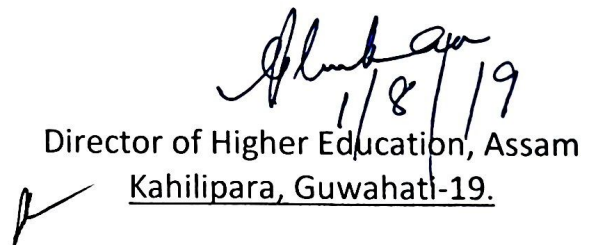 1/8/19
Director of Higher Education, Assam
Kahilipara, Guwahati-19.